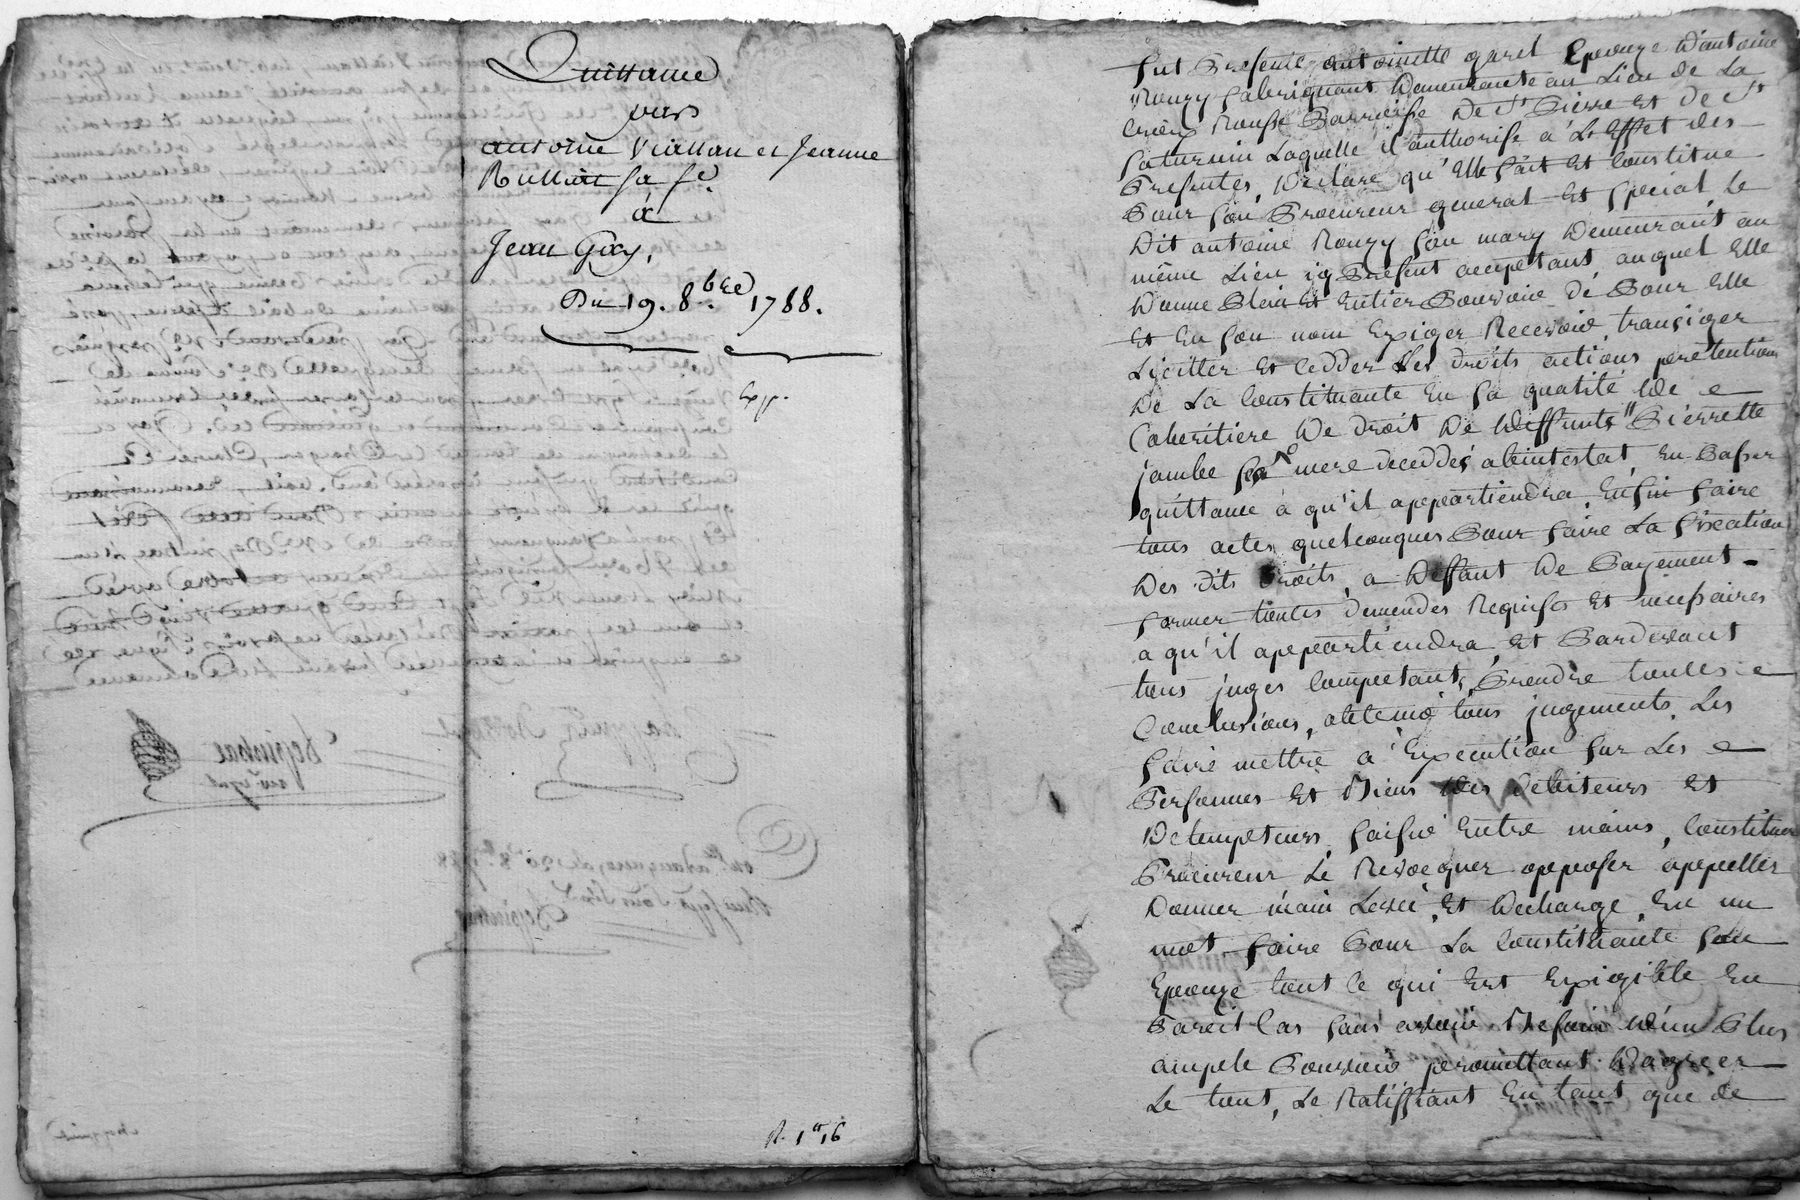 Quittance
pour
antoine Viallan et Jeanne
Rullliat sa fe.
à
Jean Gay,
Du 19. 8.bre 1788.
Exp.
R. 1tt 16
fut Presente antoinette garel Epouze D'antoine
Rouzy fabriquant Demeurante au Lieu de La
Croix Rousse Parroisse De St Pierre et De St
saturnin Laquelle il authorise a L'Effet des
Presentes, Declare qu'Elle fait Et Constitue
Pour son Procureur general Et special Le
Dit antoine Rouzy son mary Demeurant au
même Lieu ig Present acceptant auquel Elle
Donne Plein Et Entier Pouvoir de Pour Elle
Et En son nom Exiger Recevoir transiger
Liciter Et Cedder Les droits actions pretentions
De La Constituante En sa qualité De
Coheritiere De droit De Deffunte Pierrette
jambe sa mere deceddée abintestat, En Passer
quittance à qu'il appartiendra, Enfin faire
tous actes quelconques Pour faire La fixation
Des dits Droits, a Deffaut De Payement
former toutes demendes Requises Et necessaires
a qu'il appartiendra, Et Pardevant
tous juges Competants, Prendre toutes
Conclusions, obtenir tous jugements, Les
faire mettre a Execution sur Les
Personnes Et Biens Des debiteurs Et
Detempteurs, saisir Entre mains, Constituer
Procureur Le Revocquer opposer appeller
Donner main Levée, Et Decharge, En un
mot faire Pour La Constituante son
Epouze tout Ce qui Est Exigible En
Pareil Cas sans avoir Besoin D'un Plus
ample Pouvoir promettant D'agreer
Le tout, Le Ratiffiant En tant que de